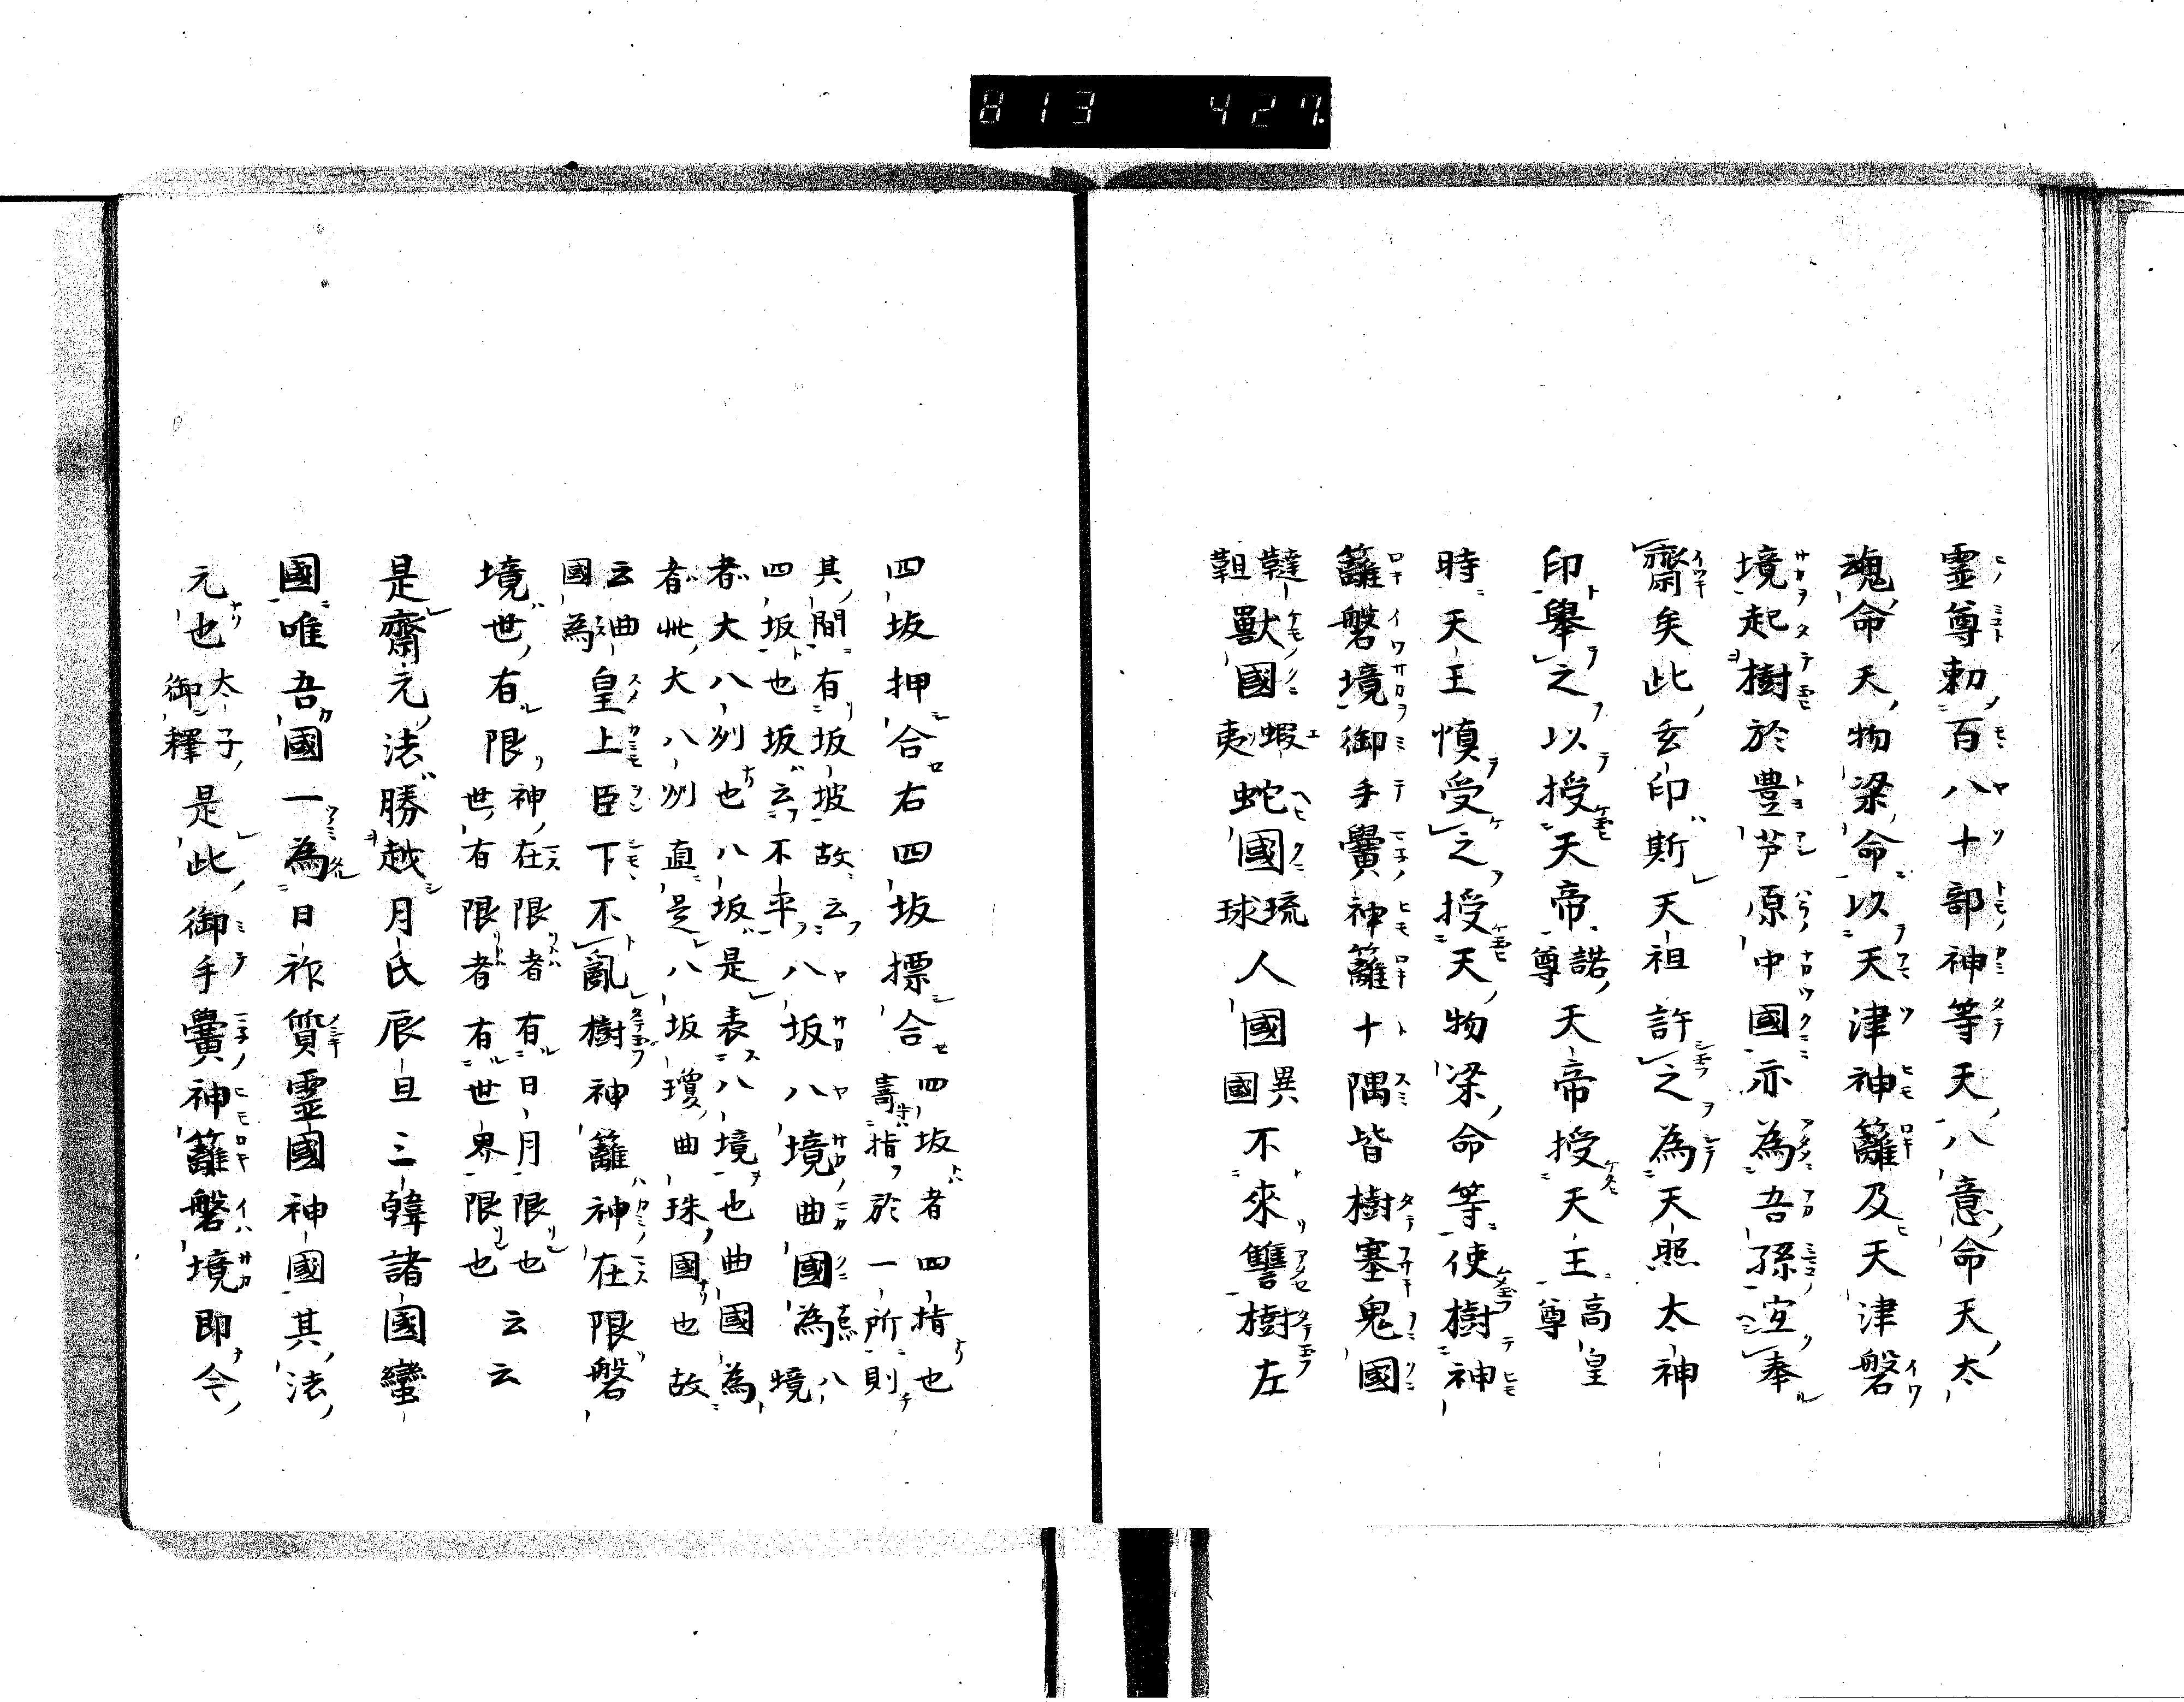 813 427
霊尊勅百八十部神等天八意命天太
魂命天物梁命以天津神籬及天津磐
境起樹於豊芦原中國亦為吾孫宜奉
齋矣此玄印斯天祖許之為天照太神
印擧之以授天帝諾尊天帝授天王高皇尊
時天王慎受之授天物梁命等使樹神
籬磐境御手舋神籬十隅皆樹塞鬼國
韃靼獸國蝦夷蛇國琉球人國異國不來讐樹左
四坂押合右四坂摽合四坂者四指也
壽指於一所則
其間有坂坡故云
四坂也坂云不平八坂八境曲國為八境
者大八州也八坂是表八境也曲國為
者此大八州直是八坂瓊曲珠國也故
云曲國為皇上臣下不亂樹神籬神在限磐
境世有限神在限者有日月限也
世有限者有世界限也云云
是齋元法勝越月氏辰旦三韓諸國蠻
國唯吾國一為日祚質霊國神國其法
元也太子御釋是此御手舋神籬磐境即今